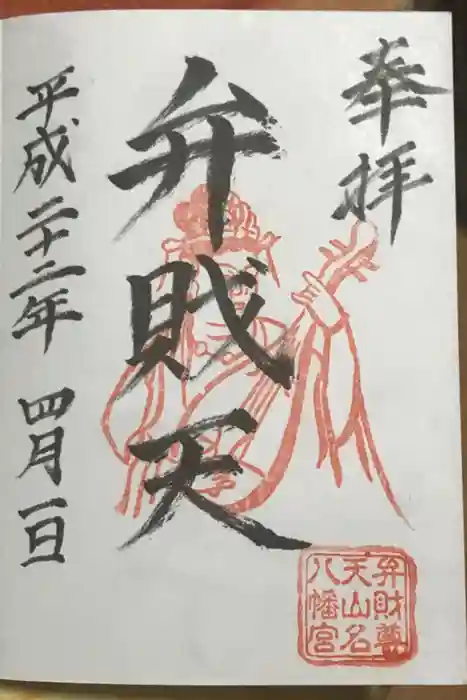 奉拝
弁財天
平成二十二年 四月一日
弁財尊
天山名
八幡宮